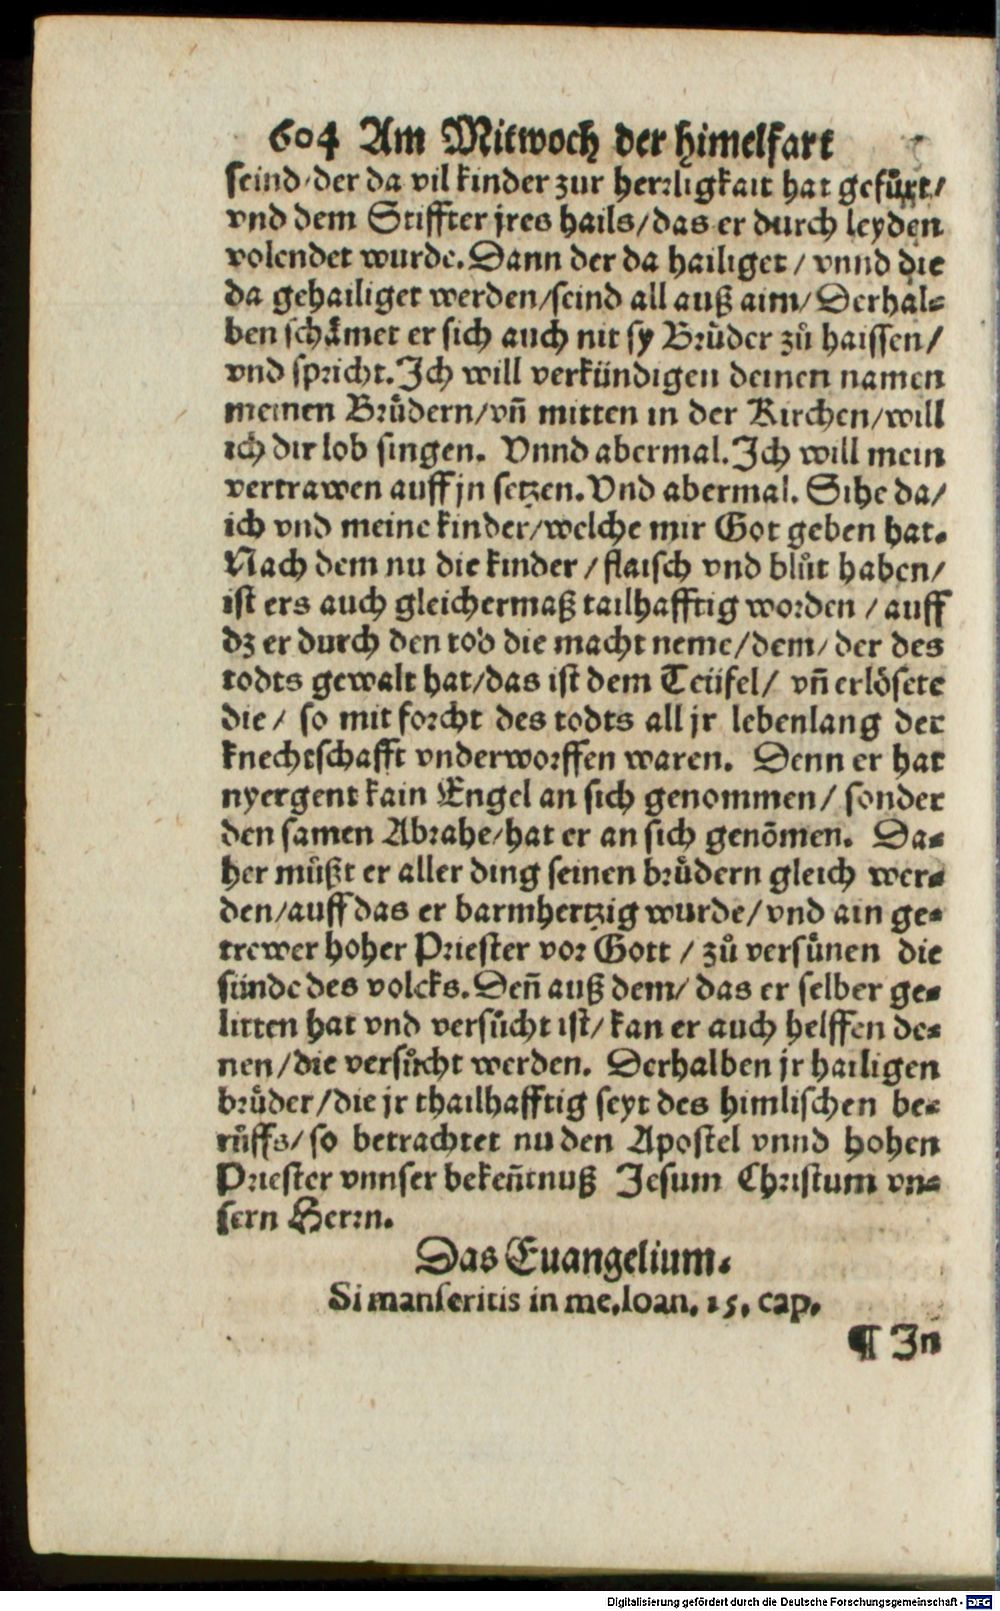 604 Am Mitwoch der himelfart
seind/der da vil kinder zur herrligkait hat gefuͤrt/
vnd dem Stiffter jres hails/das er durch leyden
volendet wurde. Dann der da hailiget/vnnd die
da gehailiget werden/seind all auß aim/Derhal-
ben schaͤmet er sich auch nit sy Bruͤder zuͦ haissen/
vnd spricht. Ich will verkündigen deinen namen
meinen Bruͤdern/vñ mitten in der Kirchen/will
ich dir lob singen. Vnnd abermal. Ich will mein
vertrawen auff jn setzen. Vnd abermal. Sihe da/
ich vnd meine kinder/welche mir Got geben hat.
Nach dem nu die kinder/flaisch vnd bluͦt haben/
ist ers auch gleichermaß tailhafftig worden/auff
dz er durch den tod die macht neme/dem/der des
todts gewalt hat/das ist dem Teüfel/ vñ erloͤsete
die/ so mit forcht des todts all jr lebenlang der
knechtschafft vnderworffen waren. Denn er hat
nyergent kain Engel an sich genommen/ sonder
den samen Abrahe/hat er an sich genõmen. Da-
her muͤßt er aller ding seinen bruͤdern gleich wer-
den/auff das er barmhertzig wurde/vnd ain ge-
trewer hoher Priester vor Gott/zuͦ versuͤnen die
sünde des volcks. Deñ auß dem/das er selber ge-
litten hat vnd versuͦcht ist/kan er auch helffen de-
nen/die versuͦcht werden. Derhalben jr hailigen
bruͤder/die jr thailhafftig seyt des himlischen be-
ruͦffs/so betrachtet nu den Apostel vnnd hohen
Priester vnnser bekeñtnuß Jesum Christum vn-
sern Herrn.
Das Euangelium.
Si manseritis in me. Ioan. 15. cap.
¶ In
Digitalisierung gefördert durch die Deutsche Forschungsgemeinschaft - DFG